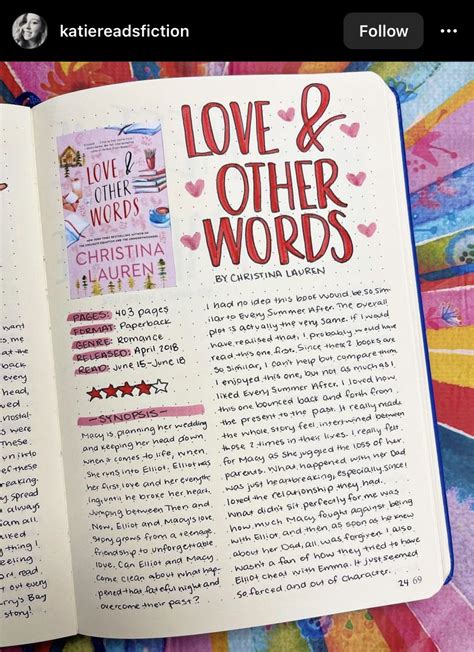 katiereadsfiction
Follow
want
me as
at the
back
every
head
nostal-
were
These
into
of these
reaking.
spread
always
all
thing!
eeling
ort read.
t out every
rry's Bay
story!
LOVE &
OTHER
WORDS
CHRISTINA
LAUREN
LOVE &
OTHER
WORDS
BY CHRISTINA LAUREN
PAGES: 403 pages
FORMAT: Paperback
GENRE: Romance
RELEASED: April 2018
READ: June 15-June 18
-SYNOPSIS-
Macy is planning her wedding
and keeping her head down
when it comes to life, when,
she runs into Elliot. Elliot was
her first love and her everyth-
ing, until he broke her heart.
Jumping between Then and
Now, Elliot and Macy's love
story grows from a teenage
friendship to unforgettable
love. Can Elliot and Macy
come clean about what hap-
pened that fateful night and
overcome their past?
I had no idea this book would be so simi-
lar to Every Summer After. The overall
plot is actually the very same. If I would
have realised that, I probably would have
read this one first. Since these 2 books are
so similar, I can't help but compare them.
I enjoyed this one, but not as much as I
liked Every Summer After. I loved how
this one bounced back and forth from
the present to the past. It really made
the whole story feel intertwined between
those 2 times in their lives. I really felt
for Macy as she juggled the loss of her
parents. What happened with her Dad
was just heartbreaking, especially since I
loved the relationship they had.
What didn't sit perfectly for me was
how much Macy fought against being
with Elliot, and then as soon as he knew
about her Dad, all was forgiven. I also
wasn't a fan of how they tried to have
Elliot cheat with Emma. It just seemed
so forced and out of character.
24 69